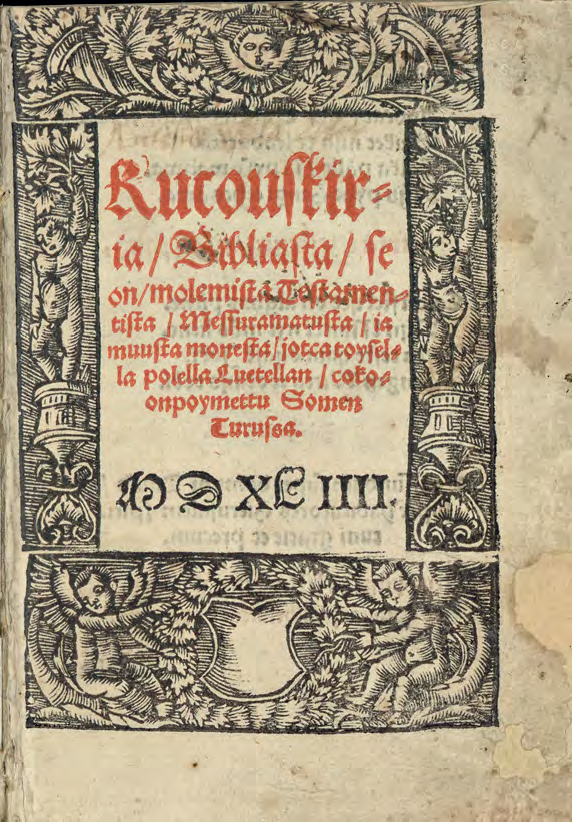 Rucouſkir⸗
ia / Bibliaſta / ſe
on / molemiſta Teſtamen⸗
tiſta / Meſſuramatuſta / ia
muuſta moneſta / jotca toyſel⸗
la polella Luetellan / coko⸗
onpoymettu Somen
Turuſsa.
M D XL IIII.